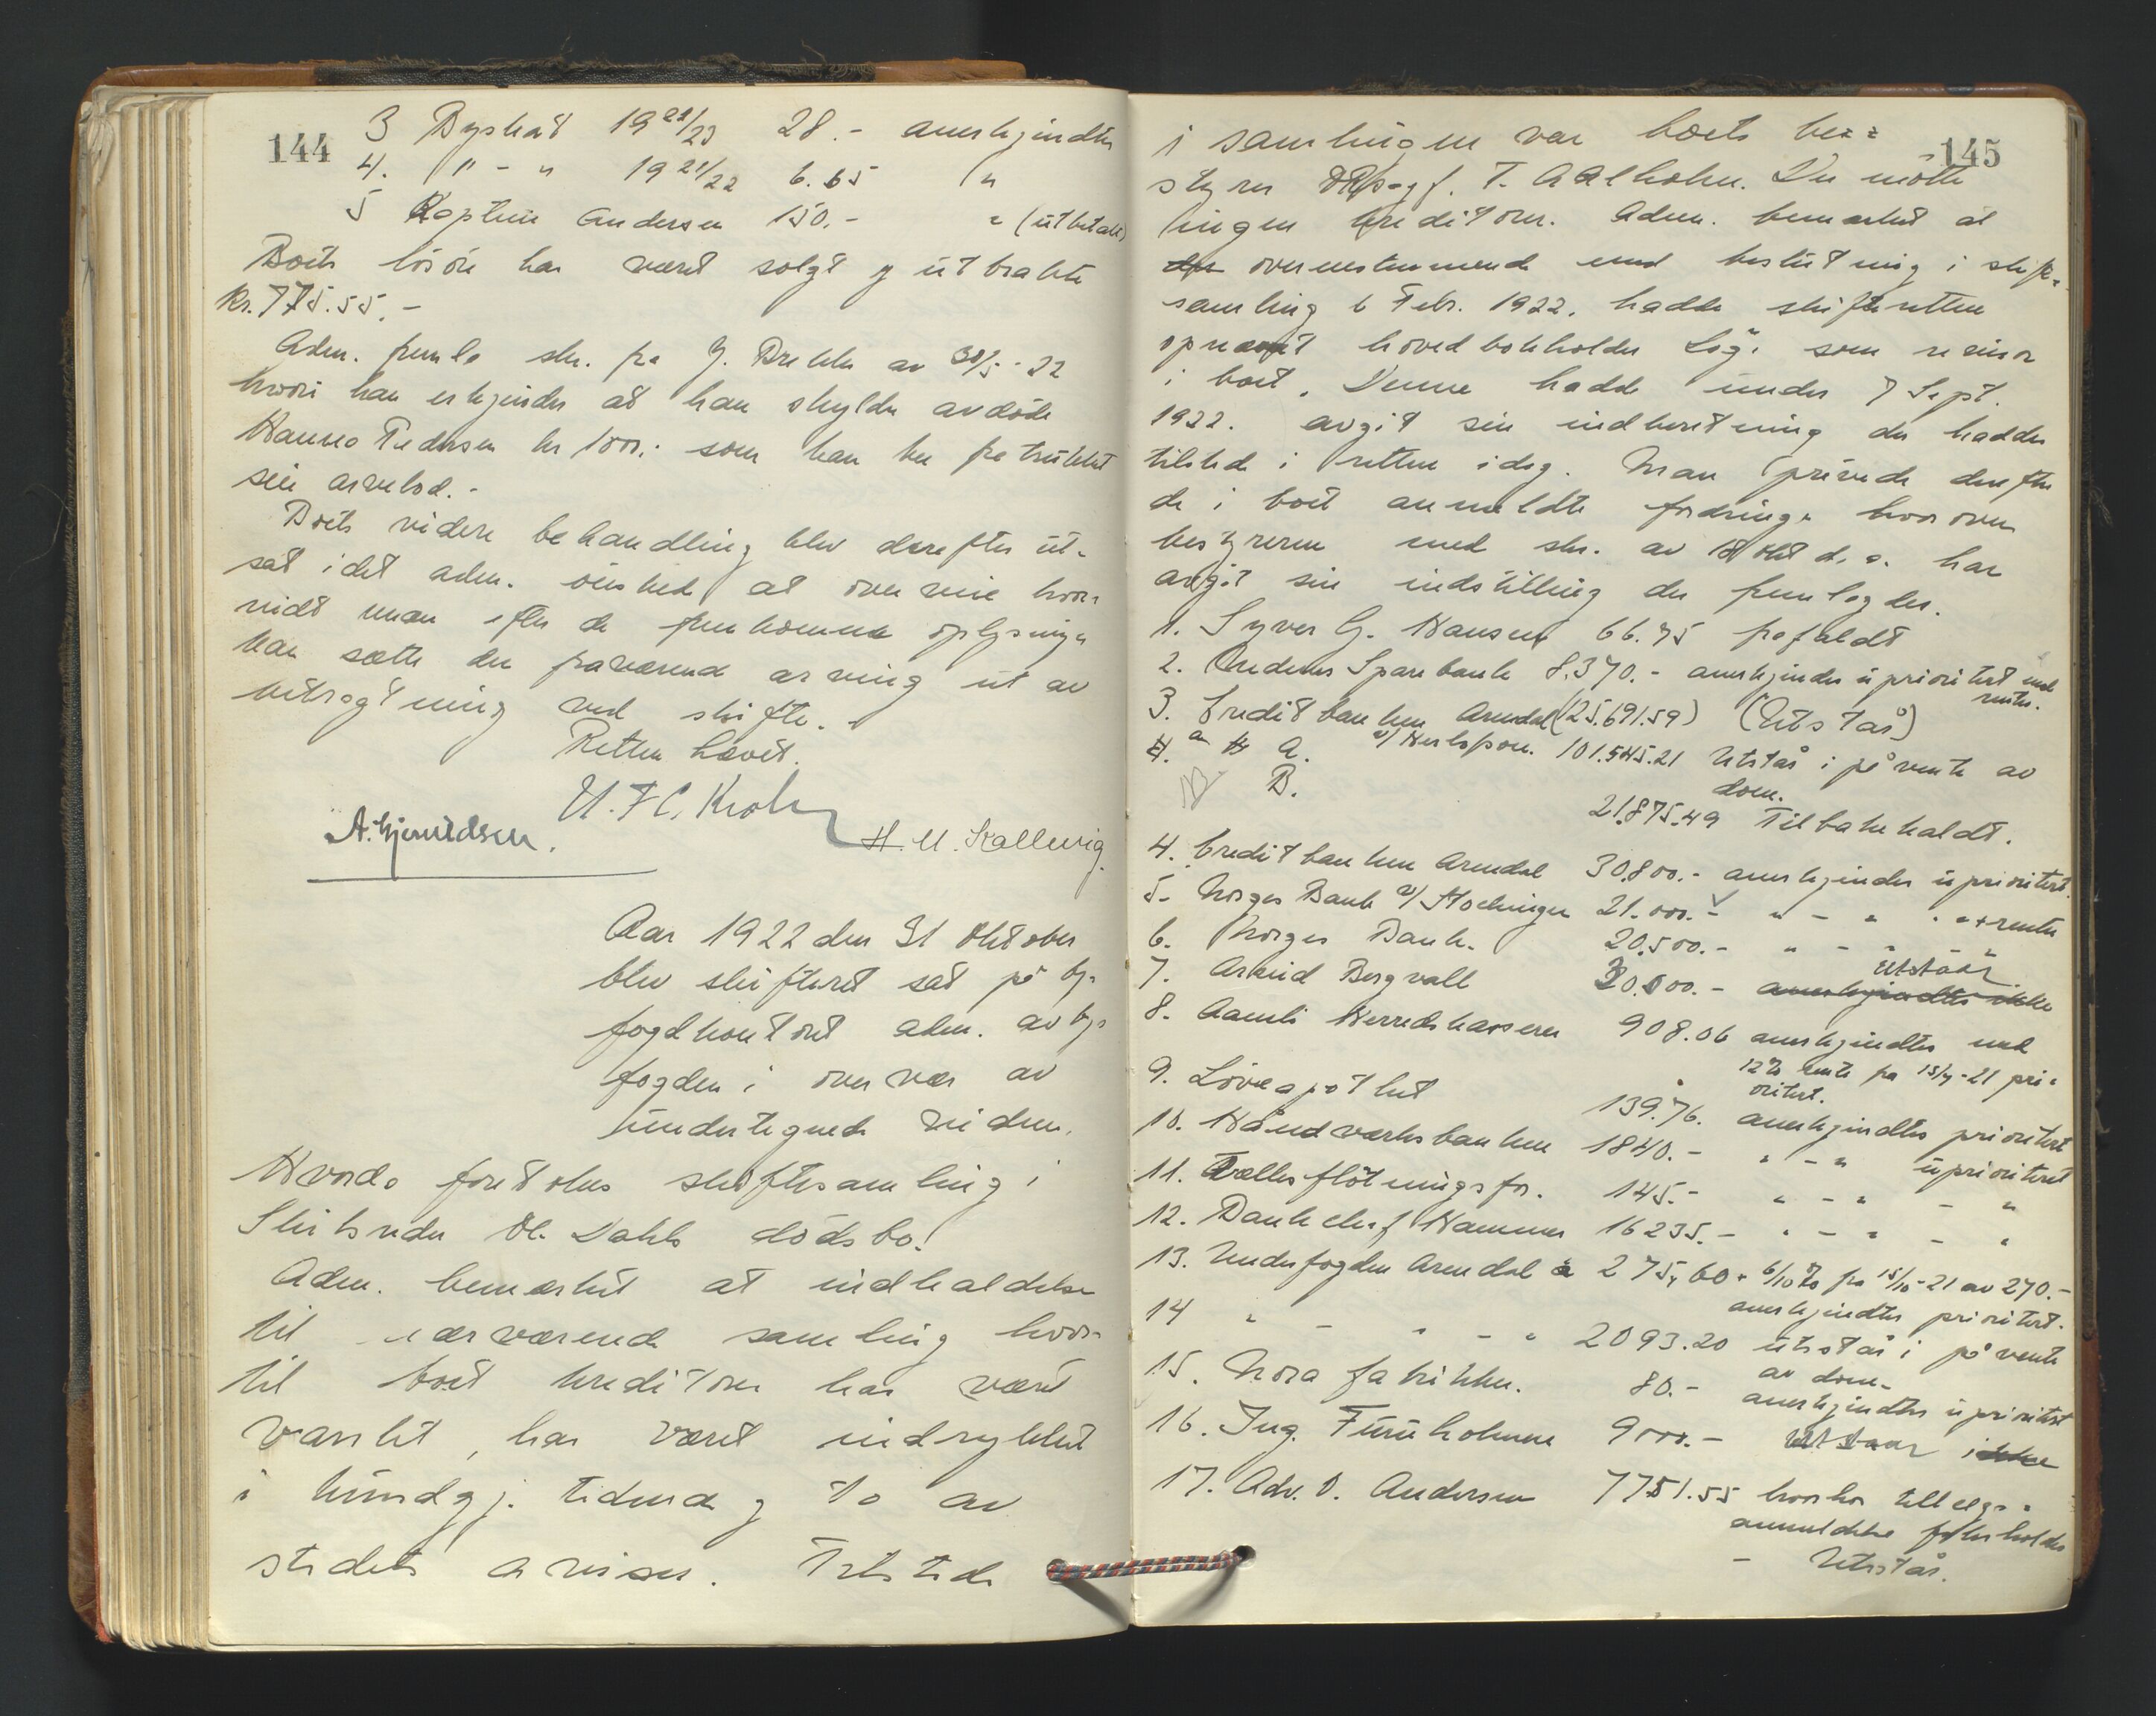 144
3 Byskat 19 22/23 28.- anerkjendtes
4. " - " 19 21/22 6.65 "
5 Kaptein Andersen 150.- " (utbetalt)
Boets lösöre har været solgt og utbrakte
Kr. 775.55.-
Adm. fremla skr. fra J. Brekke av 30/5-22
hvori han erkjender at han skylder avdöde
Hanna Pedersen kr 100.- som han har fratrukket
sin arvelod.-
Boets videre behandling blev derefter ut-
sat idet adm. önsked at overveie hvor-
vidt man efter de fremkomne oplysninger
kan sætte den fraværende arving ut av
betragtning ved skifte.
Retten hævet.
U. F. C. Krohn
A. Gjeruldsen.
H. M. Kallevig.
Aar 1922 den 31 Oktober
blev skifteret sat på by-
fogdkontoret adm. av by-
fogden i overvær av
undertegnede vidner.
Hvorda foretokes skiftesamling i
Skibsreder Ol. Dahls dödsbo.
Adm. bemerket at indkaldelse
til nærværende samling hvor-
til boets kreditorer har været
varslet, har været indrykket
i kundgj. tidende og to av
stedets aviser. Tilstede
145
i samlingen var boets be-
styrer T. Aalholm. Der mötte
ingen kreditorer. Adm. bemerket at
der overensstemmende med beslutning i skifte-
samling 6 Febr. 1922. hadde skifteretten
opnævnt hovedbokholder som revisor
i boet. Denne hadde under 7 Sept.
1922. avgit sin indberetning der hadde
tilstede i retten idag. Man prövede derefter
de i boet anmeldte fordringer hvorover
bestyreren med skr. av 18 okt d.a. har
avgit sin indstilling der fremlagdes.
1. Syver G. Hansen 66.75 frafaldt
2. Nedenes Sparebank 8.370.- anerkjendes uprioritert med
renter.
3. Kreditbanken Arendal (25.691.59) (Utstår)
A. 101.545.21 Utstår i påvente av
dom.
B. 21.875.49 Tilbakekaldt.
4. Kreditbanken Arendal 30.800.- anerkjendes uprioritert
5. Norges Bank 21.000.- " - " " + renter
6. Norges Bank. 20.500.- " - "
7. Arvid Bergvall 30.000.- utstaar anerkjendtes ikke
8. Aamli Herredskasserer 908.06 anerkjendtes med
12% rente fra 15/9-21 pri-
oritert.
9. Löveapotheket 139.76. anerkjendtes prioritert
10. Håndværksbanken 1840.- " - " uprioritert
11. Fællesflötningsfor. 145.- " - " - "
12. Bankchef Hammer 16235.- " - " - "
13. Underfogden Arendal 275,60 + 6/10 % fra 15/10-21 av 270.-
anerkjendtes prioritert.
14 " - " - " 2093.20 utstår i påvente
av dom.
15. Nora fabrikker. 80.- anerkjendtes uprioritert
16. Ing. Furuholmen 9000.- Utstaar ikke
17. Adv. O. Andersen 7751.55 hvorhos tillægs-
anmeldelse forbeholdes
- Utstår.